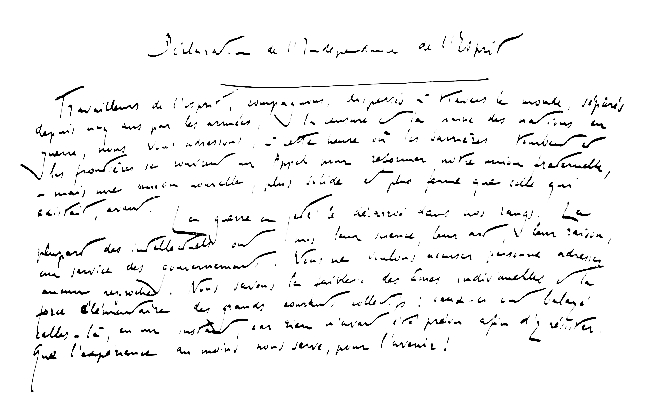 Déclaration de l'Indépendance de l'Esprit
Travailleurs de l'esprit, compagnons, dispersés à travers le monde, séparés
depuis cinq ans par les armées, la censure et la haine des nations en
guerre, nous vous adressons, à cette heure où les barrières tombent et
les frontières se rouvrent un Appel pour reformer notre union fraternelle,
- mais une union nouvelle, plus solide et plus ferme que celle qui
existait, avant.
La guerre a jeté le désarroi dans nos rangs. La
plupart des intellectuels ont mis leur science, leur art, leur raison,
au service des gouvernements. Nous ne voulons accuser personne, adresser
aucun reproche. Nous savons la faiblesse des âmes individuelles et la
force élémentaire des grands courants collectifs; ceux-ci ont balayé
celles-là, en un instant car rien n'avait été prévu afin d'y résister.
Que l'expérience au moins nous serve, pour l'avenir!